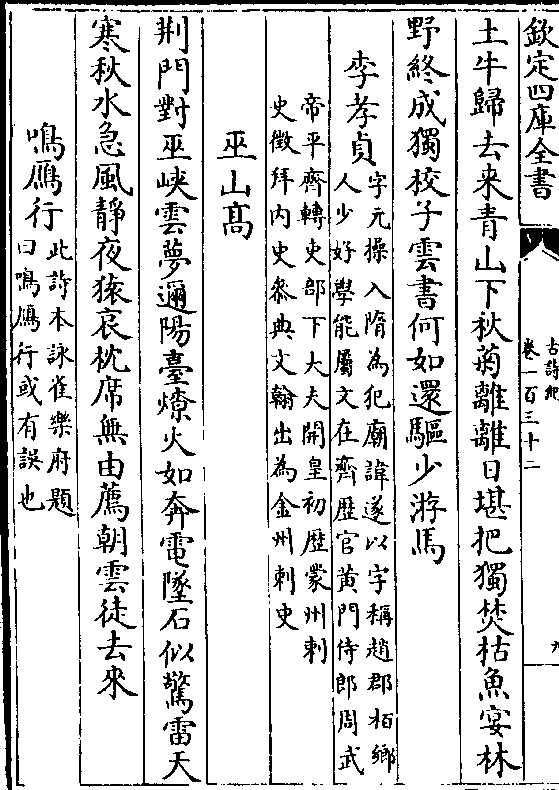 欽定四庫全書
古詩紀
卷一百三十二
九
土牛歸去来青山下秋菊離離日堪把獨焚枯魚宴林
野終成獨校子雲書何如還驅少游馬
李孝貞
字元操入隋為犯廟諱遂以字稱趙郡柏鄉
人少好學能屬文在齊歴官黄門侍郎周武
帝平齊轉吏部下大夫開皇初歴蒙州刺
史徴拜内史叅典文翰出為金州刺史
巫山髙
荆門對巫峽雲夢邇陽臺燎火如奔電墜石似驚雷天
寒秋水急風靜夜猿哀枕席無由薦朝雲徒去來
鳴鴈行
此詩本詠雀樂府題
曰鳴鴈行或有誤也